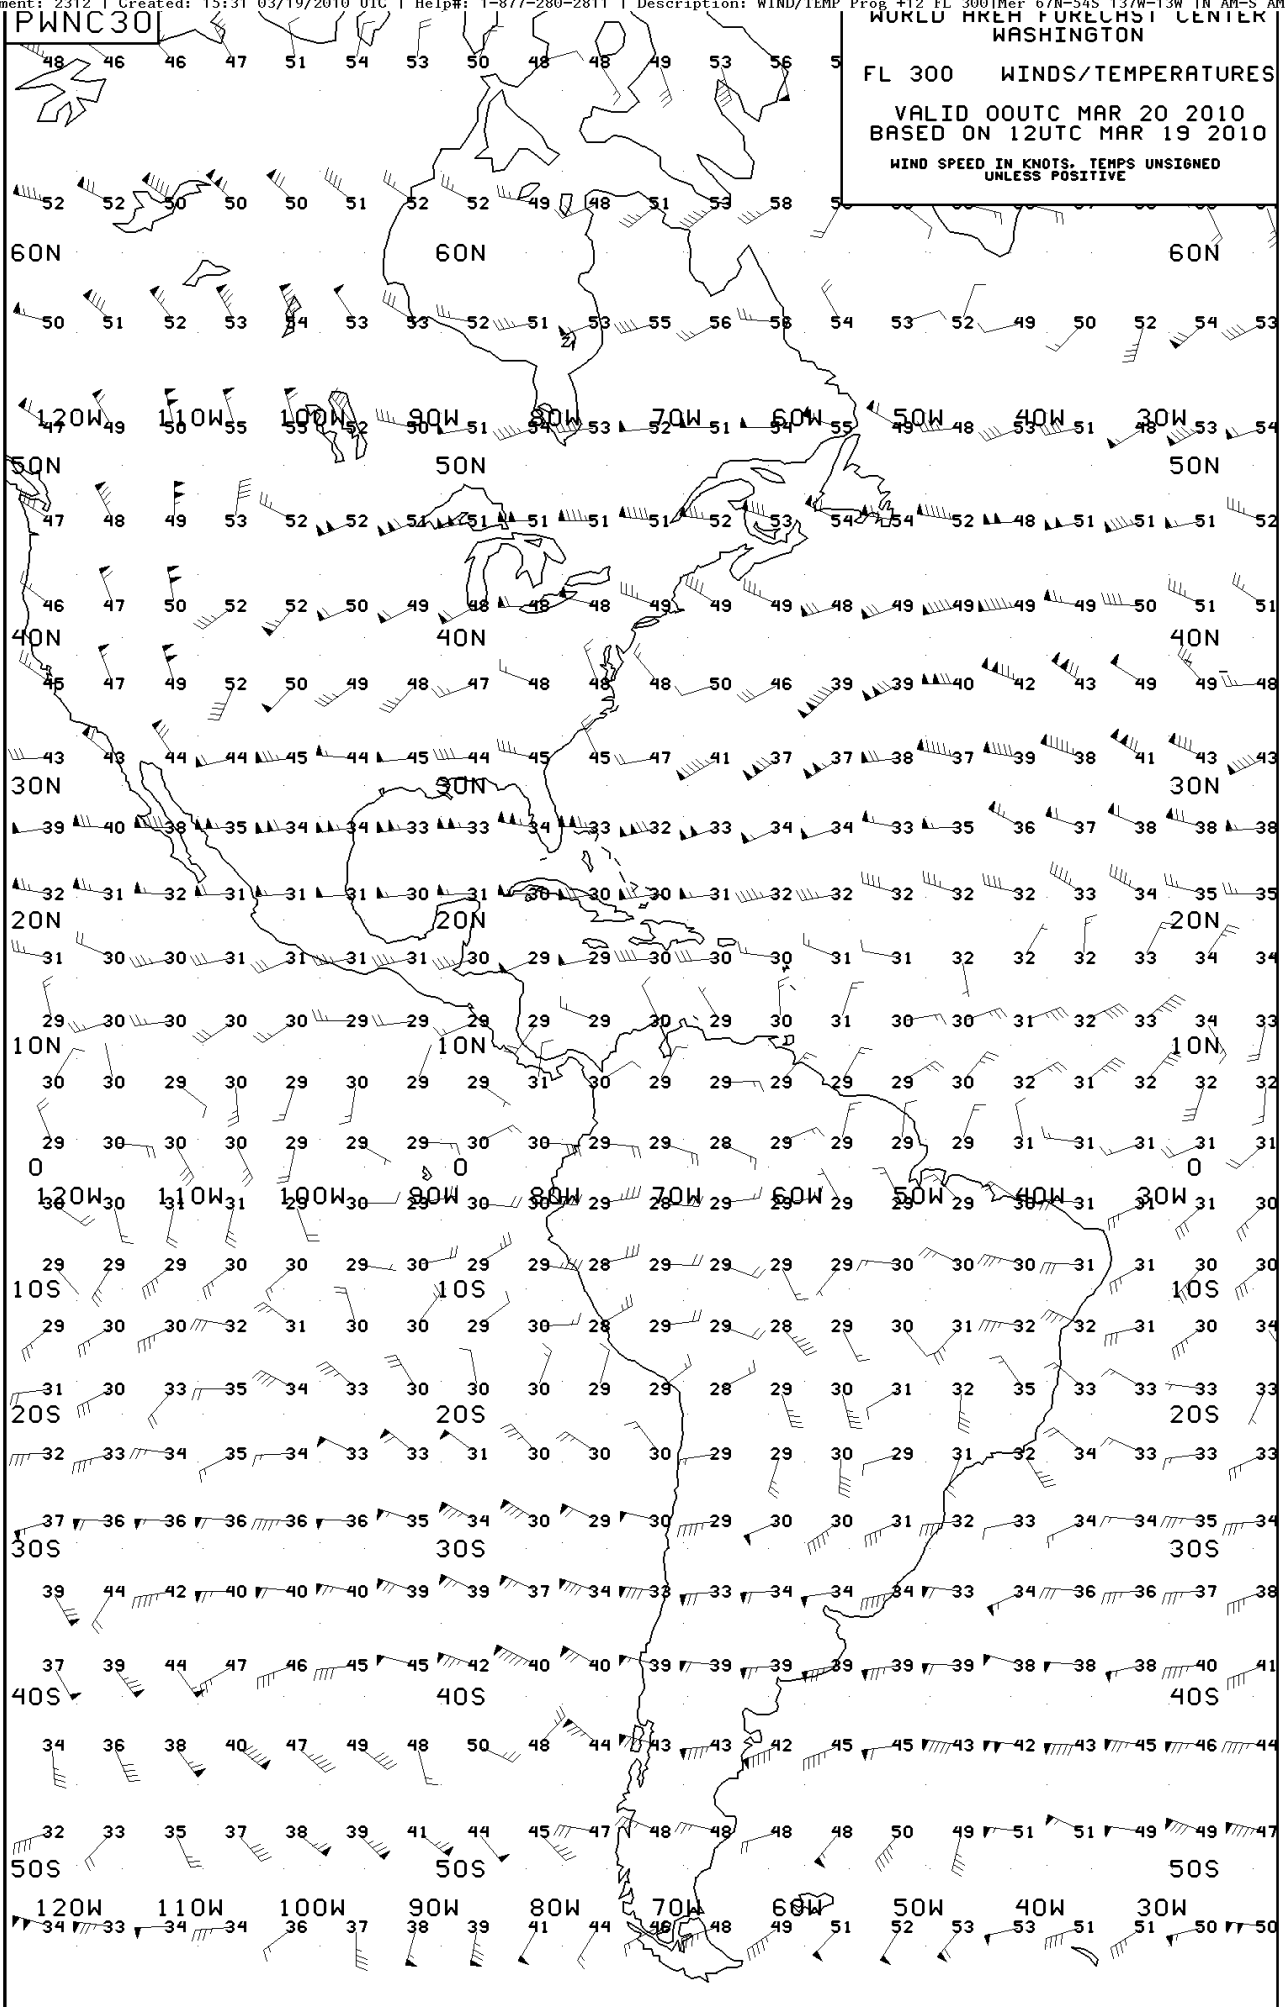 ment: 2312 | Created: 15:31 03/19/2010 UTC | Help#: 1-877-280-2811 | Description: WIND/TEMP Prog +12 FL 300|Mer 67N-54S 137W-13W |N AM-S AM
PWNC30
WORLD AREA FORECAST CENTER
WASHINGTON
FL 300 WINDS/TEMPERATURES
VALID 00UTC MAR 20 2010
BASED ON 12UTC MAR 19 2010
WIND SPEED IN KNOTS. TEMPS UNSIGNED
UNLESS POSITIVE
48 46 46 47 51 54 53 50 48 48 49 53 56
52 52 50 50 50 51 52 52 49 48 51 53 58
60N 60N 60N
50 51 52 53 54 53 53 52 51 53 55 56 58 54 53 52 49 50 52 54 53
120W 110W 100W 90W 80W 70W 60W 50W 40W 30W
47 49 50 55 55 52 50 51 54 53 52 51 54 55 49 48 53 51 48 53 54
50N 50N
47 48 49 53 52 52 51 51 51 51 51 52 53 54 54 52 48 51 51 51 52
46 47 50 52 52 50 49 48 48 48 49 49 49 48 49 49 49 49 50 51 51
40N 40N 40N
45 47 49 52 50 49 48 47 48 48 48 50 46 39 39 40 42 43 49 49 48
43 43 44 44 45 44 45 44 45 45 47 41 37 37 38 37 39 38 41 43 43
30N 30N 30N
39 40 38 35 34 34 33 33 34 33 32 33 34 34 33 35 36 37 38 38 38
32 31 32 31 31 31 30 31 30 30 30 31 32 32 32 32 32 33 34 35 35
20N 20N 20N
31 30 30 31 31 31 31 30 29 29 30 30 30 31 31 32 32 32 33 34 34
29 30 30 30 30 29 29 29 29 29 30 29 30 31 30 30 31 32 33 34 33
10N 10N 10N
30 30 29 30 29 30 29 29 31 30 29 29 29 29 29 30 32 31 32 32 32
29 30 30 30 29 29 29 30 30 29 29 28 29 29 29 29 31 31 31 31 31
0 0 0
120W 110W 100W 90W 80W 70W 60W 50W 40W 30W
30 30 31 31 29 30 29 30 30 29 28 29 29 29 29 29 30 31 31 31 30
29 29 29 30 30 29 30 29 29 28 29 29 29 29 30 30 30 31 31 30 30
10S 10S 10S
29 30 30 32 31 30 30 29 30 28 29 29 28 29 30 31 32 32 31 30 34
31 30 33 35 34 33 30 30 30 29 29 28 29 30 31 32 35 33 33 33 33
20S 20S 20S
32 33 34 35 34 33 33 31 30 30 30 29 29 30 29 31 32 34 33 33 33
37 36 36 36 36 36 35 34 30 29 30 29 30 30 31 32 33 34 34 35 34
30S 30S 30S
39 44 42 40 40 40 39 39 37 34 33 33 34 34 34 33 34 36 36 37 38
37 39 44 47 46 45 45 42 40 40 39 39 39 39 39 39 38 38 38 40 41
40S 40S 40S
34 36 38 40 47 49 48 50 48 44 43 43 42 45 45 43 42 43 45 46 44
32 33 35 37 38 39 41 44 45 47 48 48 48 48 50 49 51 51 49 49 47
50S 50S 50S
120W 110W 100W 90W 80W 70W 60W 50W 40W 30W
34 33 34 34 36 37 38 39 41 44 46 48 49 51 52 53 53 51 51 50 50